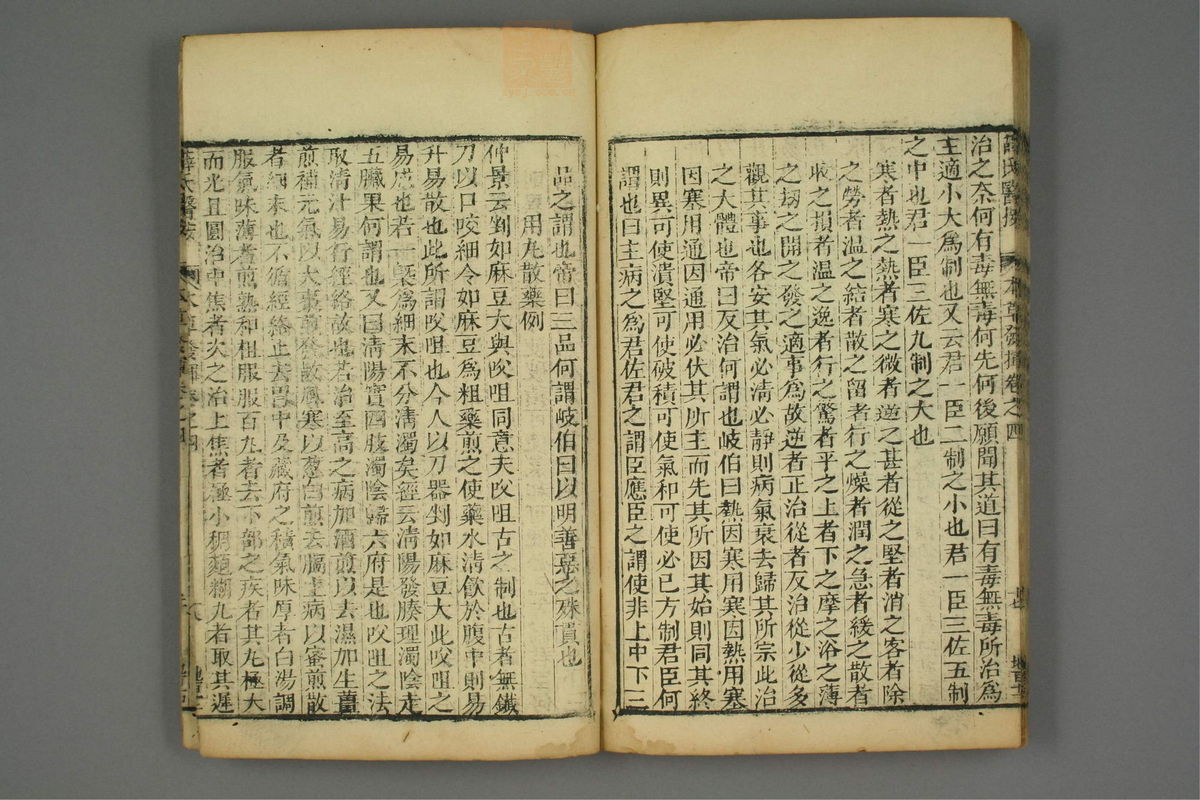 薛氏醫按 本草發揮卷之四
治之奈何有毒無毒何先何後願聞其道曰有毒無毒所治爲
主適小大爲制也又云君一臣二制之小也君一臣三佐五制
之中也君一臣三佐九制之大也
寒者熱之熱者寒之微者逆之甚者從之堅者消之客者除
之勞者温之結者散之留者行之燥者潤之急者緩之散者
收之損者温之逸者行之驚者平之上者下之摩之浴之薄
之刼之開之發之適事爲故逆者正治從者反治從少從多
觀其事也各安其氣必淸必靜則病氣衰去歸其所宗此治
之大體也帝曰反治何謂也岐伯曰熱因寒用寒因熱用塞
因塞用通因通用必伏其所主而先其所因其始則同其終
則異可使潰堅可使破積可使氣和可使必已方制君臣何
謂也曰主病之爲君佐君之謂臣應臣之謂使非上中下三
品之謂也帝曰三品何謂岐伯曰以明善惡之殊貫也
用丸散藥例
仲景云剉如麻豆大與㕮咀同意夫㕮咀古之制也古者無鐵
刀以口咬細令如麻豆爲粗藥煎之使藥水淸飮於腹中則易
升易散也此所謂㕮咀也今人以刀器剉如麻豆大此㕮咀之
易成也若一槩爲細末不分淸濁矣經云淸陽發腠理濁陰走
五臟果何謂也又曰淸陽實四肢濁陰歸六府是也㕮咀之法
取淸汁易行經絡故也若治至高之病加酒煎以去濕加生薑
煎補元氣以大棗煎發散風寒以葱白煎去膈上病以蜜煎散
者細末也不循經絡止去胃中及藏府之積氣味厚者白湯調
服氣味薄者煎熟和柤服服百丸者去下部之疾者其丸極大
而光且圓治中焦者次之治上焦者極小稠麵糊丸者取其遲
薛氏醫按 本草發揮卷之四